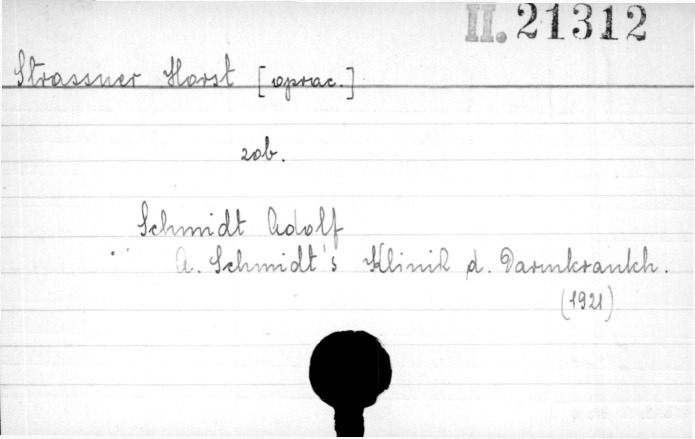 II. 21312
Strassner Horst [oprac.]
zob.
Schmidt Adolf
A. Schmidt's Klinik d. Darmkrankh.
(1921)